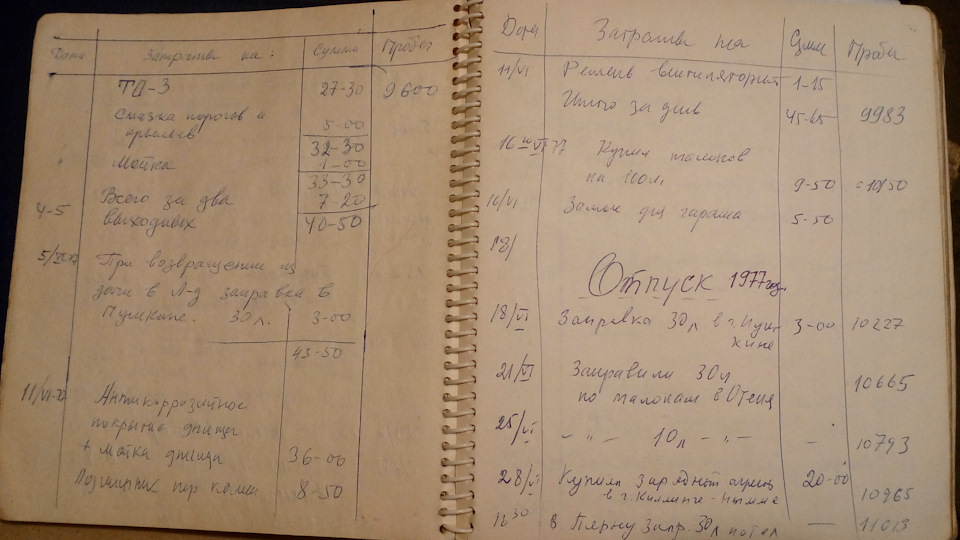 Дата Затраты на: Сумма Пробег
ТО-3 27-30 9600
Смазка порогов и 5-00
крыльев 32-30
Мойка 1-00
33-30
4-5 Всего за два 7-20
выходных 40-50
5/VI-77 При возвращении из
дачи в Л-д заправка в
Пушкине. 30л. 3-00
43-50
11/VI-77 Антикоррозийное
покрытие днища
+ мойка днища 36-00
Подшипник пер колеса 8-50
Дата Затраты на Сумм Пробег
11/VI Ремень вентиляторный 1-15
Итого за день 45-65 9983
16 VI 77 Купил талонов
на 100л. 9-50
16/VI Замок для гаража 5-50
18/
Отпуск 1977год.
18/VI Заправка 30л в г.Пуш 3-00 10227
кине
21/VI Заправили 30л 10665
по талонам в Отепя
25/VI -"- 10л -"- — 10793
28/VI Купили зарядный 20-00
в г. -Нымме 10965
16 30 в Пярну запр. 30л по тал — 11013